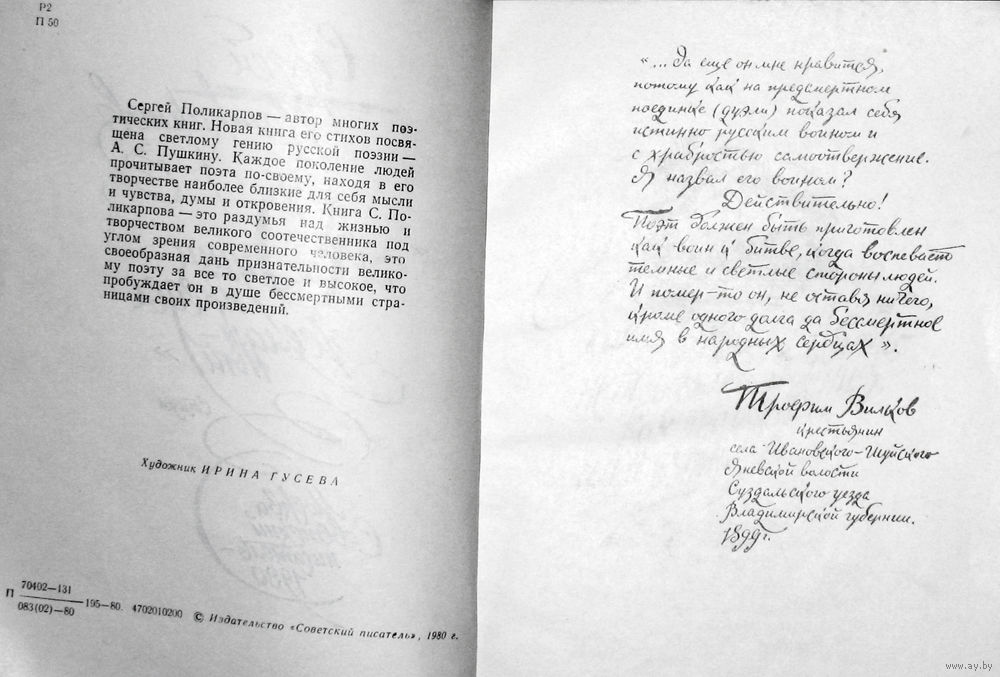 Р2
П 50
Сергей Поликарпов — автор многих поэ-
тических книг. Новая книга его стихов посвя-
щена светлому гению русской поэзии —
А. С. Пушкину. Каждое поколение людей
прочитывает поэта по-своему, находя в его
творчестве наиболее близкие для себя мысли
и чувства, думы и откровения. Книга С. По-
ликарпова — это раздумья над жизнью и
творчеством великого соотечественника под
углом зрения современного человека, это
своеобразная дань признательности велико-
му поэту за все то светлое и высокое, что
пробуждает он в душе бессмертными стра-
ницами своих произведений.
Художник ИРИНА ГУСЕВА
П 70402—131
083(02)—80 195—80. 4702010200
© Издательство «Советский писатель», 1980 г.
«... Да еще он мне нравится,
потому как на предсмертном
поединке (дуэли) показал себя
истинно русским воином и
с храбростью самоотвержение.
Я назвал его воином?
Действительно!
Поэт должен быть приготовлен
как воин к битве, когда воспевает
темные и светлые стороны людей.
И помер-то он, не оставя ничего,
кроме одного долга да бессмертное
имя в народных сердцах».
Трофим Вилков
крестьянин
села Ивановского-Шуйского
Яневской волости
Суздальского уезда
Владимирской губернии.
1899г.
www.ay.by